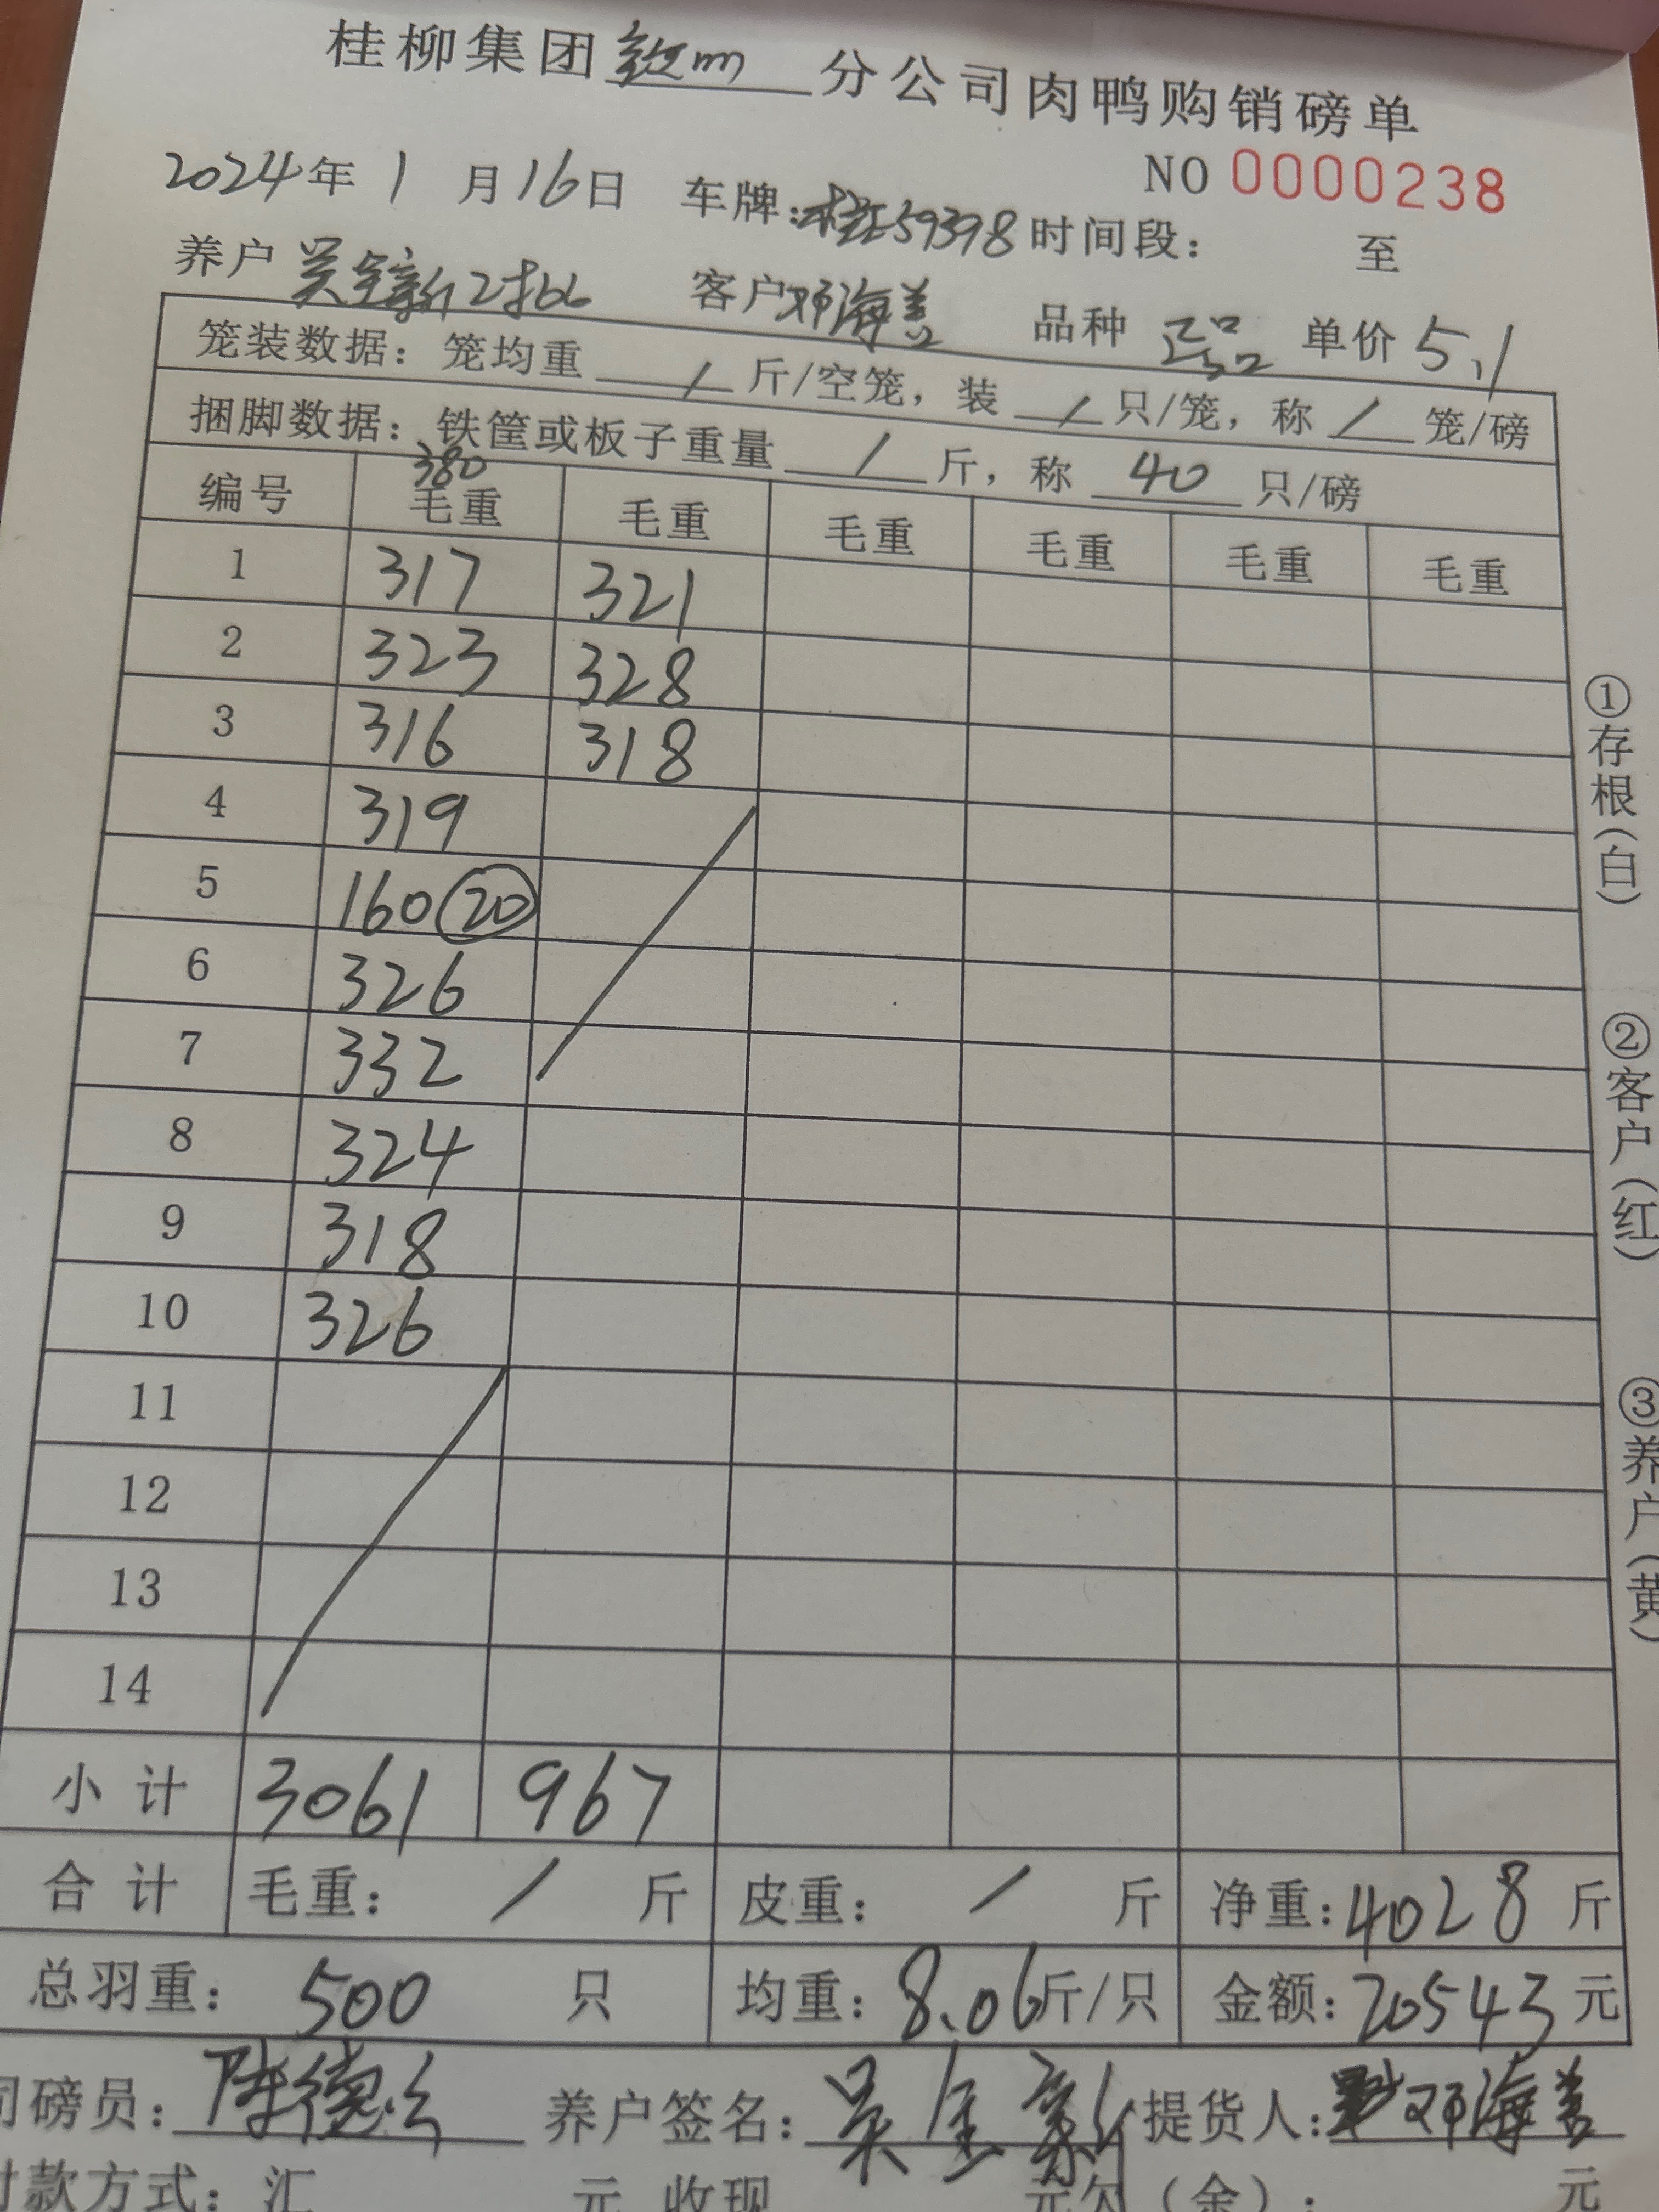 桂柳集团钦州分公司肉鸭购销磅单
NO 0000238
2024年 1 月 16 日 车牌:桂E59398 时间段: 至
养户 吴金新2批 客户 邓海善 品种 正品 单价 5.1
笼装数据:笼均重 / 斤/空笼,装 / 只/笼,称 / 笼/磅
捆脚数据:铁筐或板子重量 / 斤,称 40 只/磅
380
编号 毛重 毛重 毛重 毛重 毛重 毛重
1 317 321
2 323 328
3 316 318
4 319
5 160 20
6 326
7 332
8 324
9 318
10 326
11
12
13
14
小计 3061 967
合计 毛重: / 斤 皮重: / 斤 净重:4028 斤
总羽重: 500 只 均重:8.06斤/只 金额:20543 元
司磅员: 陆德 养户签名:吴金新 提货人:邓海善
付款方式:汇 元 收现 元欠(余): 元
①存根(白)
②客户(红)
③养户(黄)